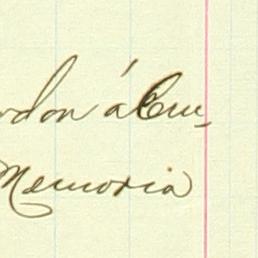 rdon á Cru-
Memoria